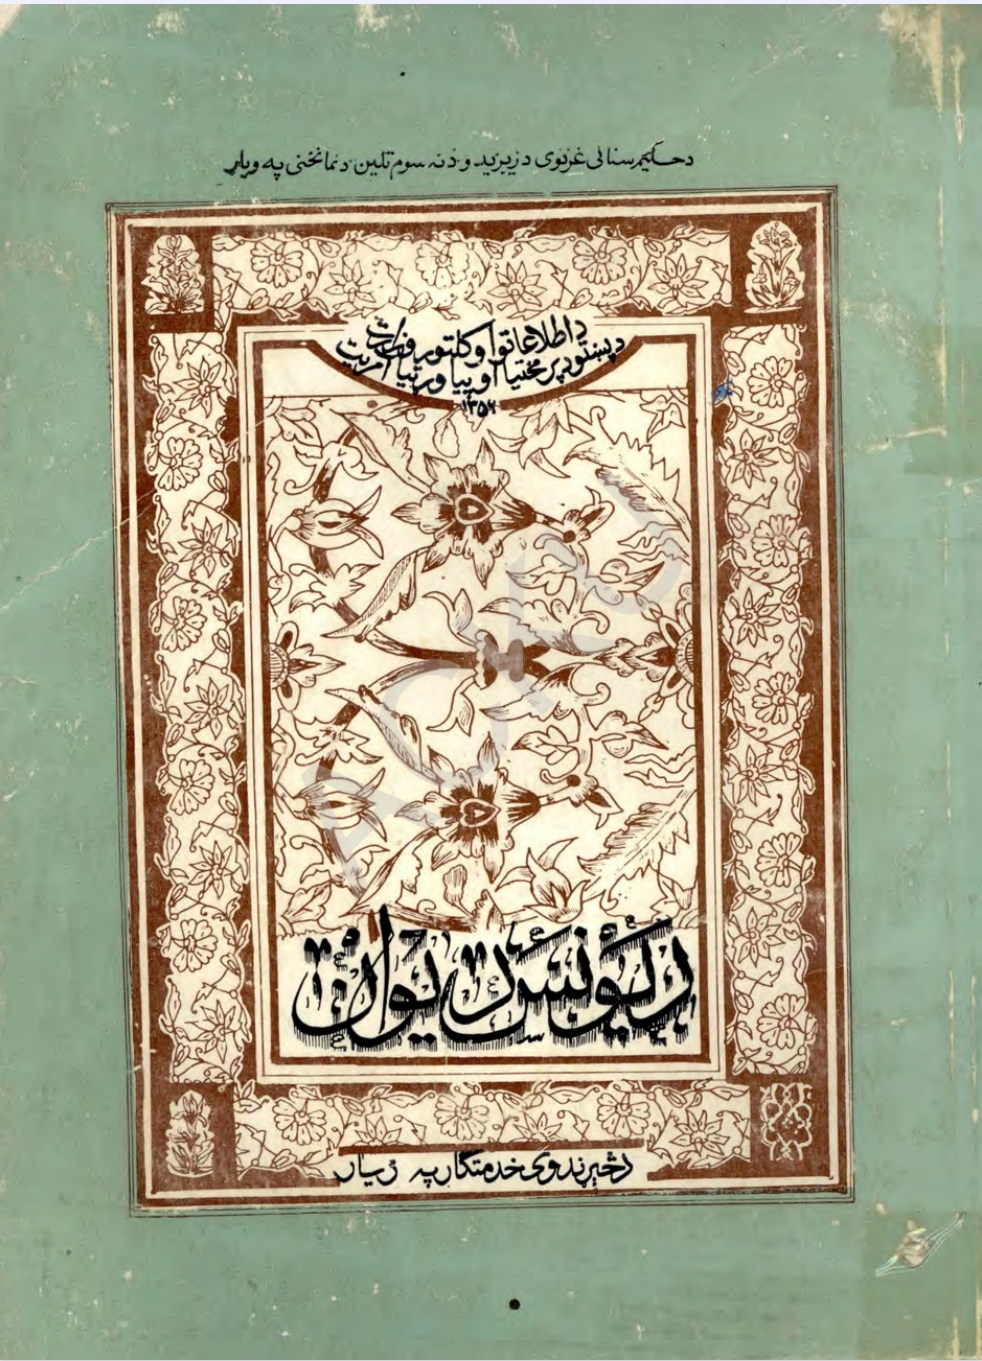 دحکیم سنائی غزنوی د زیږیدو د نه سوم تلین د نمانځنی په ویاړ
د اطلاعاتو او کلتور وزارت
د پښتو د پرمختیا او پیاوړتیا آمریت
۱۳۵۶
د څیړندوی خدمتگار په زیار
ACKU